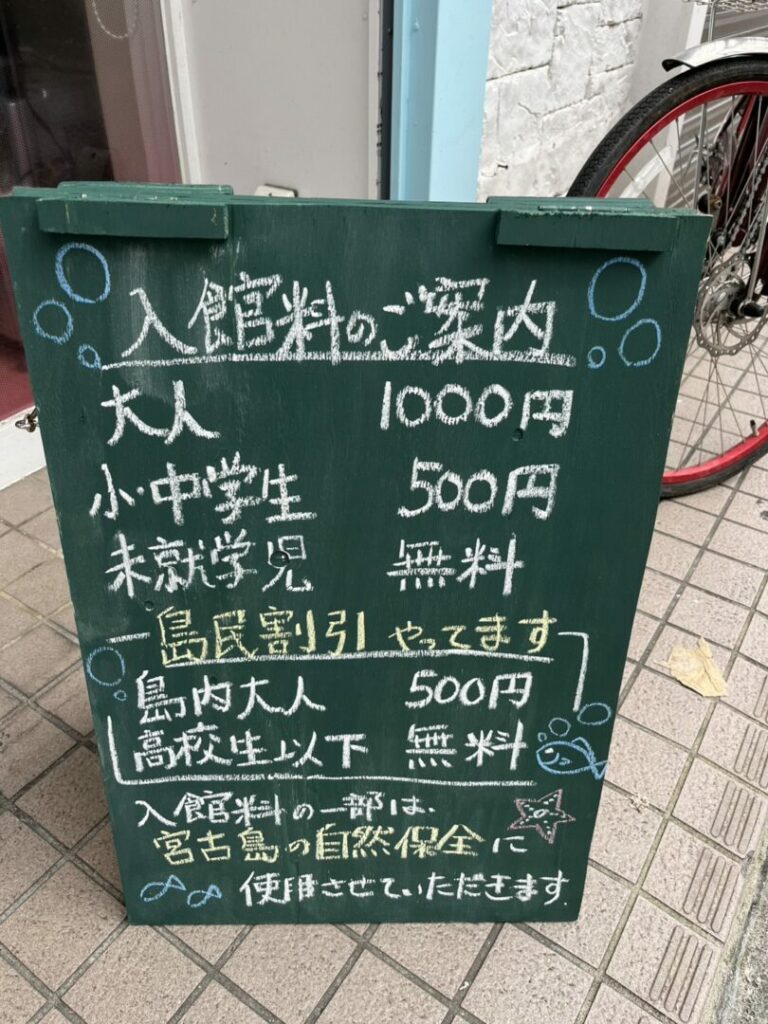 入館料のご案内
大人 1000円
小・中学生 500円
未就学児 無料
島民割引 やってます
島内大人 500円
高校生以下 無料
入館料の一部は、
宮古島の自然保全に
使用させていただきます。